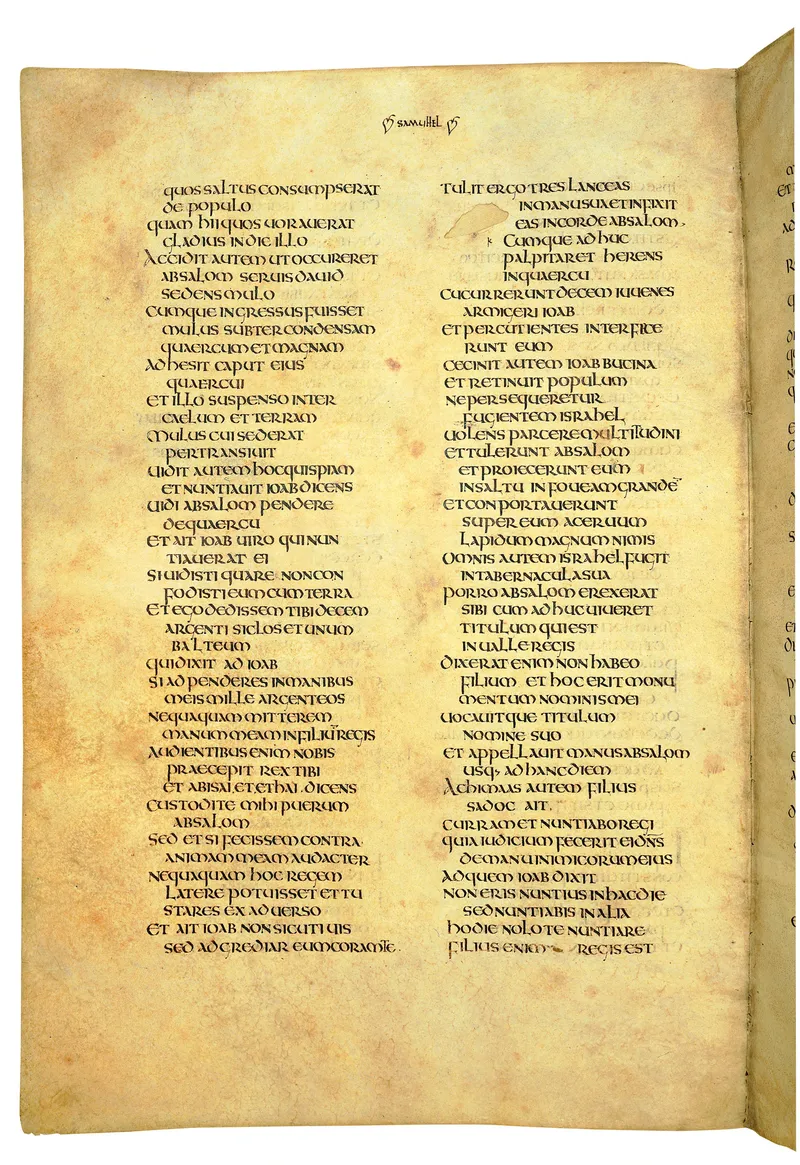 SAMUHEL
quos saltus consumpserat
de populo
quam hii quos uorauerat
gladius in die illo
Accidit autem ut occureret
absalom seruis dauid
sedens mulo
Cumque ingressus fuisset
mulus subter condensam
quaercum et magnam
adhesit caput eius
quaercui
et illo suspenso inter
caelum et terram
mulus cui sederat
pertransiuit
uidit autem hoc quispiam
et nuntiauit ioab dicens
uidi absalom pendere
de quaercu
et ait ioab uiro qui nun
tiauerat ei
si uidisti quare non con
fodisti eum cum terra
et ego dedissem tibi decem
argenti siclos et unum
balteum
qui dixit ad ioab
si adpenderes in manibus
meis mille argenteos
nequaquam mitterem
manum meam in filiū regis
audientibus enim nobis
praecepit rex tibi
et abisai et ethai dicens
custodite mihi puerum
absalom
sed et si fecissem contra
animam meam audacter
nequaquam hoc regem
latere potuisset et tu
stares ex aduerso
et ait ioab non sicut tu uis
sed adgrediar eum coram te
tulit ergo tres lanceas
in manu sua et infixit
eas in corde absalom
Cumque adhuc
palpitaret herens
in quaercu
cucurrerunt decem iuuenes
armigeri ioab
et percutientes interfice
runt eum
cecinit autem ioab bucina
et retinuit populum
ne persequeretur
fugientem israhel
uolens parcere multitudini
et tulerunt absalom
et proiecerunt eum
in saltu in foueam grandē
et conportauerunt
super eum aceruum
lapidum magnum nimis
omnis autem israhel fugit
in tabernacula sua
porro absalom erexerat
sibi cum adhuc uiueret
titulum qui est
in ualle regis
dixerat enim non habeo
filium et hoc erit monu
mentum nominis mei
uocauitque titulum
nomine suo
et appellauit manus absalom
usq; ad hanc diem
Achimaas autem filius
sadoc ait
curram et nuntiabo regi
quia iudicium fecerit ei dn̄s
de manu inimicorum eius
ad quem ioab dixit
non eris nuntius in hac die
sed nuntiabis in alia
hodie nolo te nuntiare
filius enim regis est